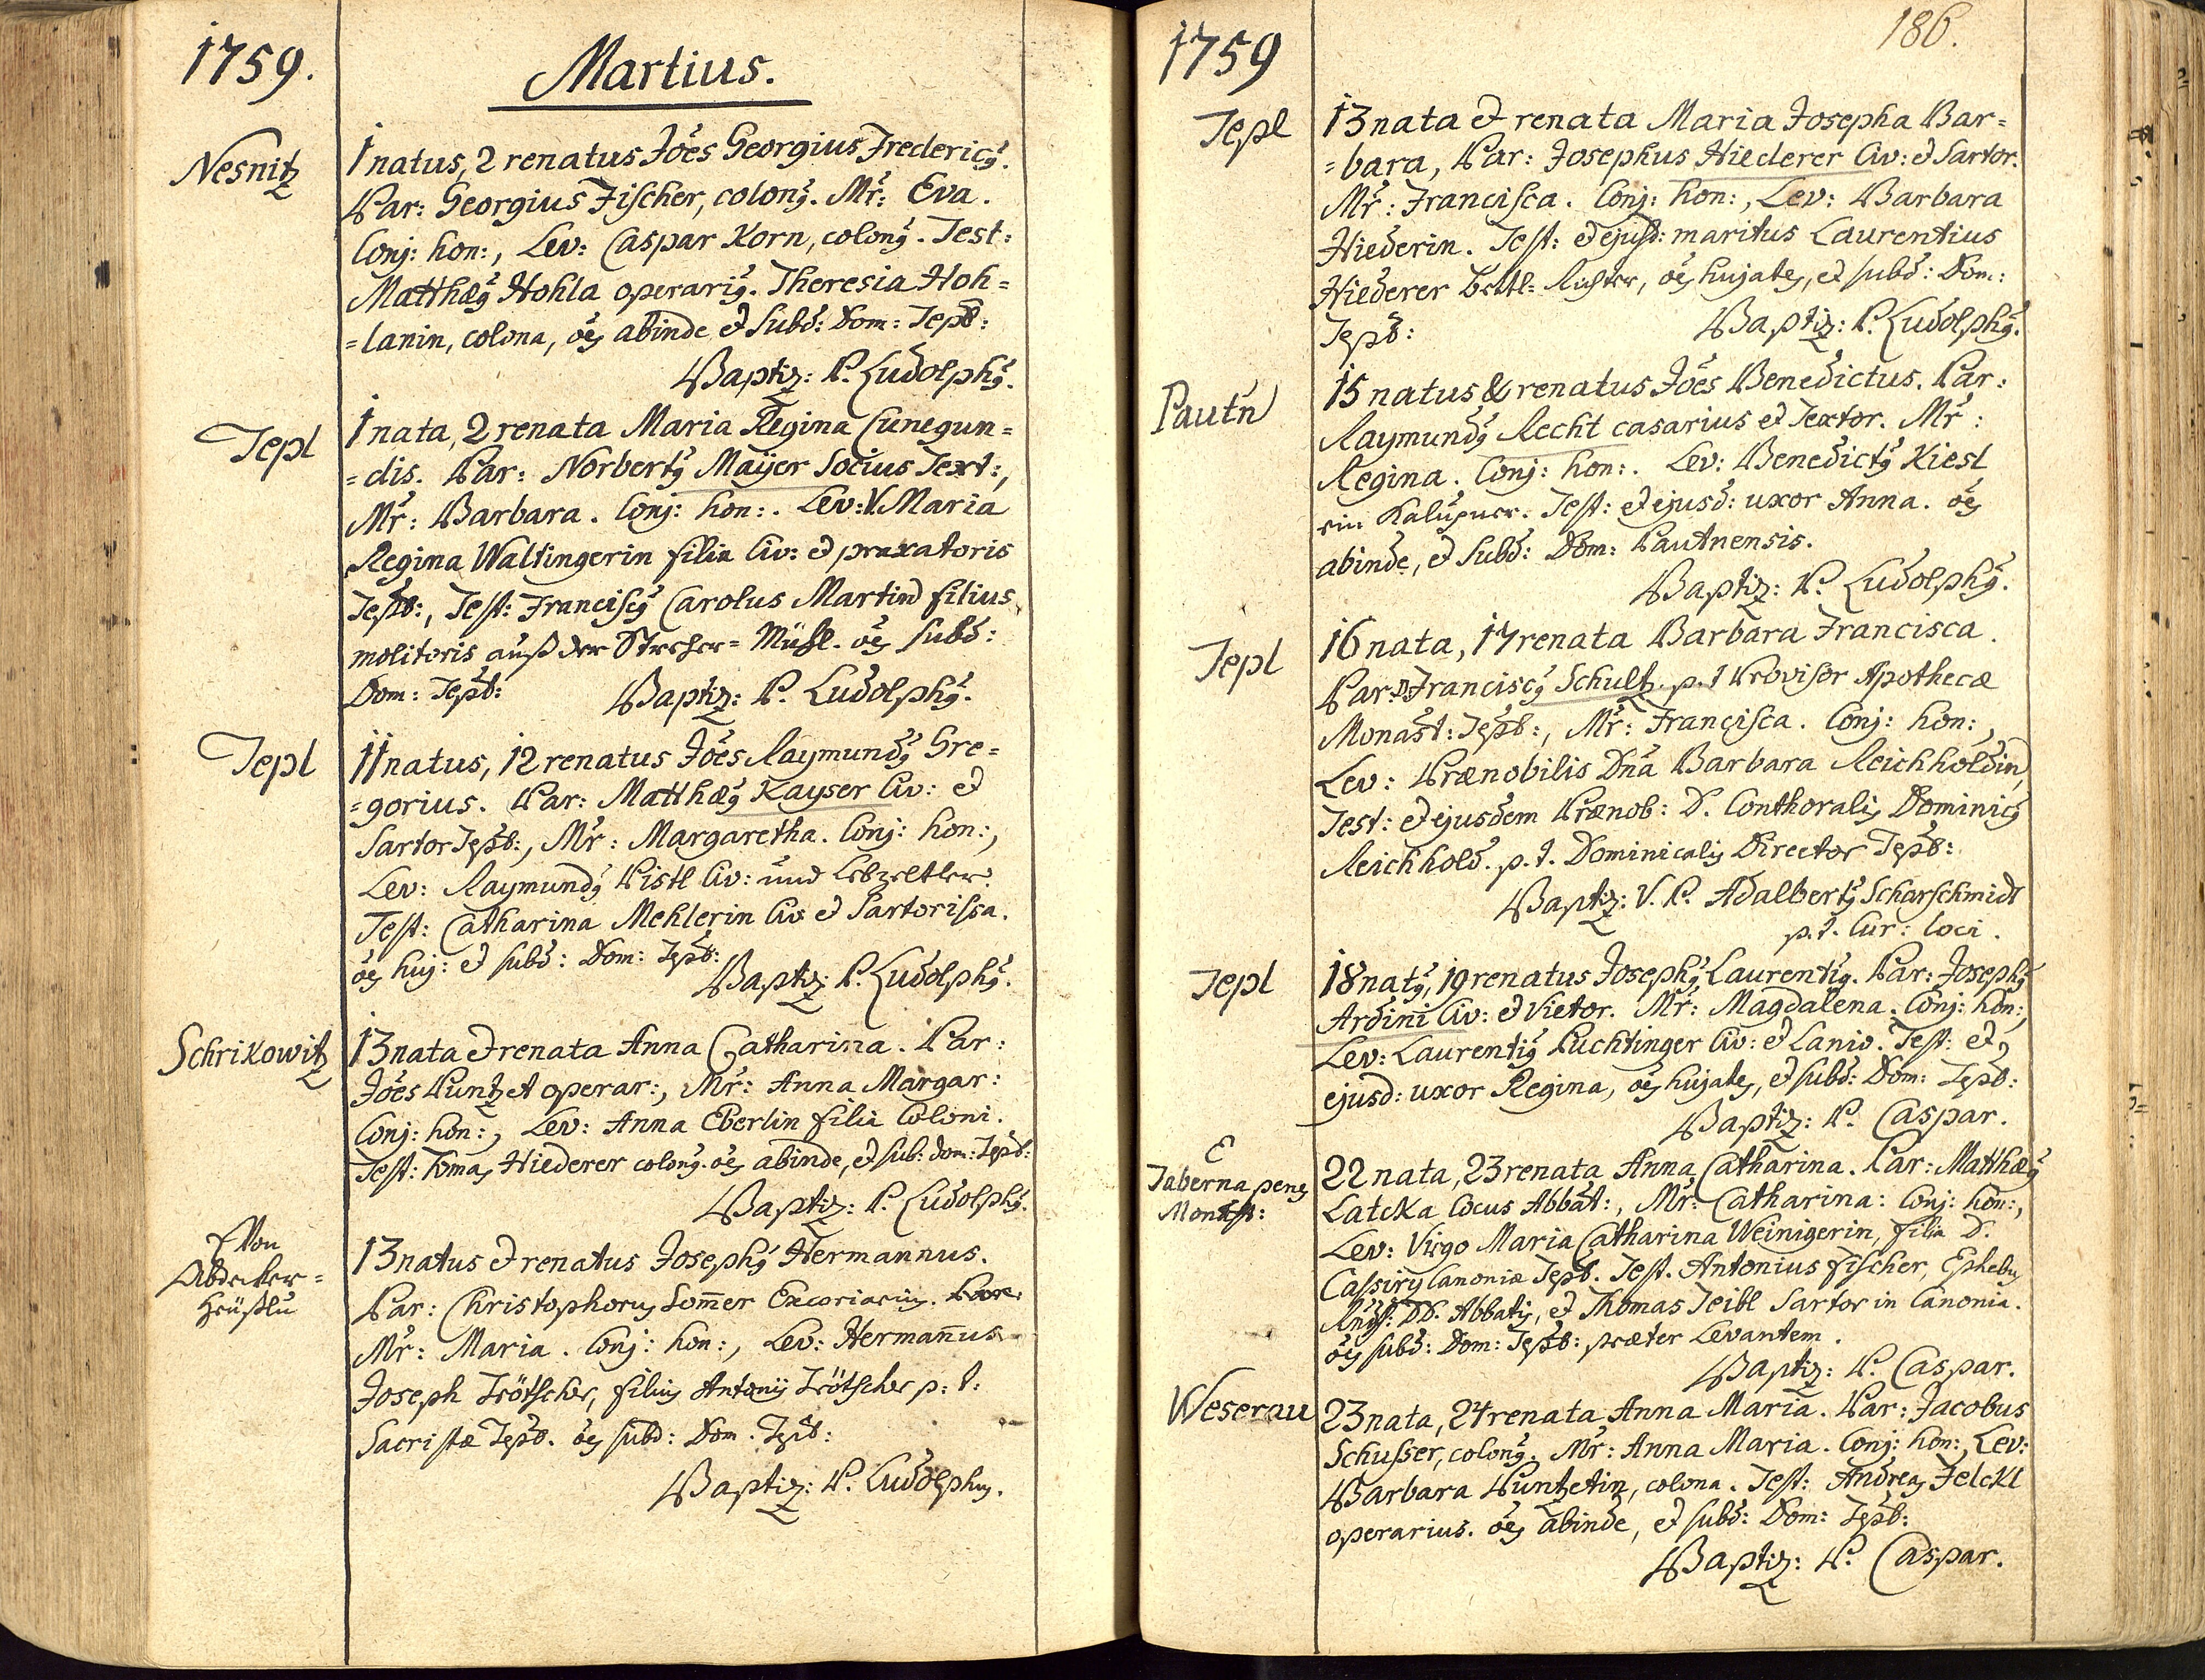 1759.
Martius.
Nesnitz
1 natus, 2 renatus Jões Georgius Frederic9.
Par: Georgius Fischer, colon9. Mr̃: Eva.
Conj: hon:, Lev: Caspar Korn, colon9. Test:
Matthæ9 Hohla operari9. Theresia Hoh=
=lanin, colona, oẽs abinde et subd: Dom: Tepl:
Baptiz: P. Ludolph9.
Tepl
1 nata, 2 renata Maria Regina Cunegun=
=dis. Par: Norbert9 Maÿer Socius Text:,
Mr̃: Barbara. Conj: hon:. Lev: V. Maria
Regina Waltingerin filia Civ: et praxatoris
Tepl:, Test: Francisc9 Carolus Martin filius
molitoris auß der Strecher= Mühl. oẽs subd:
Dom: Tepl: Baptiz: P. Ludolph9.
Tepl
11 natus, 12 renatus Jões Raymund9 Gre=
=gorius. Par: Matthæ9 Kayser Civ: et
Sartor Tepl:, Mr̃: Margaretha. Conj: hon:,
Lev: Raymund9 Pistl Civ: und Lebzeltler.
Test: Catharina Mehlerin Civ: et Sartorissa.
oẽs huj: et subd: Dom: Tepl:
Baptiz: P. Ludolph9.
Schrikowitz
13 nata et renata Anna Catharina. Par:
Jões Puntzet operar:, Mr̃: Anna Margar:
Conj: hon:, Lev: Anna Eberlin filia Coloni.
Test: Tomas Hiederer colon9. oẽs abinde, et sub: dom: Tepl:
Baptiz: P. Ludolph9.
Von
Abdecker=
Heüßlu
13 natus et renatus Joseph9 Hermannus.
Par: Christophorus Som̃er Excoriarius.
Mr̃: Maria. Conj: hon:, Lev: Herman̄us
Joseph Trötscher, filius Antonii Trötscher p: t:
Sacristæ Tepl. oẽs subd: Dom. Tepl:
Baptiz: P. Ludolphus.
1759
186.
Tepl
13 nata et renata Maria Josepha Bar=
=bara, Par: Josephus Hiederer Civ: et Sartor.
Mr̃: Francisca. Conj: hon:, Lev: Barbara
Hiederin. Test: et ejusd: maritus Laurentius
Hiederer Bettl= Richter, oẽs hujates, et subd: Dom:
Tepl: Baptiz: P. Ludolph9.
Pautn
15 natus & renatus Jões Benedictus. Par:
Raymund9 Recht casarius et Textor. Mr̃:
Regina. Conj: hon:. Lev: Benedict9 Kiesl
ein Kalupner. Test: et ejusd: uxor Anna. oẽs
abinde, et Subd: Dom: Pautnensis.
Baptiz: P. Ludolph9.
Tepl
16 nata, 17 renata Barbara Francisca.
Par: D. Francisc9 Schultz p. t Provisor Apothecæ
Monast: Tepl:, Mr̃: Francisca. Conj: hon:,
Lev: Prænobilis Dña Barbara Reichholdin,
Test: et ejusdem Prænob: D. Conthoralis Dominic9
Reichhold. p. t. Dominicalis Director Tepl:
Baptiz: V. P. Adalbert9 Scharschmidt
p. t. Cur: loci.
Tepl
18 nat9, 19 renatus Joseph9 Laurenti9. Par: Joseph9
Ardini Civ: et Vietor. Mr̃: Magdalena. Conj: hon:,
Lev: Laurenti9 Puchtinger Civ: et Lanio. Test: et
ejusd: uxor Regina, oẽs hujates, et subd: Dom: Tepl:
Baptiz: P. Caspar.
E
Taberna penes
Monast:
22 nata, 23 renata Anna Catharina. Par: Matthæ9
Latcka Cocus Abbat:, Mr̃: Catharina: Conj: hon:,
Lev: Virgo Maria Catharina Weinigerin, filia D.
Cassirÿ Canoniæ Tepl. Test. Antonius Fischer, Ephebus
DD. Abbatis, et Thomas Teibl Sartor in Canonia.
oẽs subd: Dom: Tepl: præter Levantem.
Baptiz: P. Caspar.
Weserau
23 nata, 24 renata Anna Maria. Par: Jacobus
Schusser, colon9. Mr̃: Anna Maria. Conj: hon:, Lev:
Barbara Puntzetin, colona. Test: Andreas Felckl
operarius. oẽs abinde, et subd: Dom: Tepl:
Baptiz: P. Caspar.